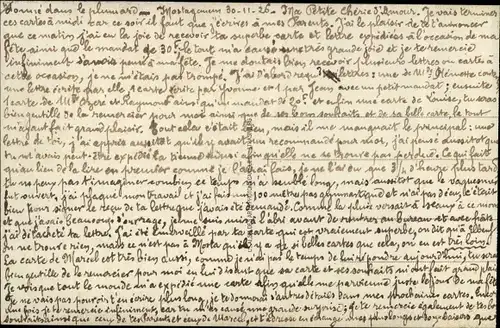 Donné dans le plumard. Mostaganem 30-11-26. Ma Petite Chérie d'Amour. Je vais terminer
ces cartes à midi car ce soir il faut que j'écrive à mes Parents. J'ai le plaisir de te t'annoncer
que ce matin, j'ai eu la joie de recevoir ta superbe carte et lettre expédiées à l'occasion de ma
fête ainsi que le mandat de 30f. le tout m'a causé une très grande joie et je te remercie
infiniment d'avoir pensé à ma fête. Je me doutais bien recevoir plusieurs lettres ou cartes à
cette occasion, je ne m'étais pas trompé. J'ai d'abord reçu lettres: une de Mme avec
une lettre écrite par elle, 1 carte écrite par Yvonne et 1 par Jean avec un petit mandat; ensuite
1 carte de Mme et Raymond ainsi qu'un mandat de 20f. et enfin une carte de Louise, tu seras
bien gentille de la remercier pour moi ainsi de ses bons souhaits et de sa belle carte, le tout
m'ayant fait grand plaisir. Tout cela c'était bien, mais il me manquait le principal: une
lettre de toi, j'ai appris aussitôt qu'il y avait un recommandé pour moi, j'ai pensé aussitôt que
tu m'avais peut-être expédié la tienne ainsi afin qu'elle ne se trouve pas perdue. Ce qui fait
qu'au lieu de la lire en premier comme je l'aurais fais, je ne l'ai eu que 1/2 d'heure plus tard
tu ne peux pas t'imaginer combien ce temps m'a semblé long, mais aussitôt que le vaguemestre
fut ouvert, j'ai plaqué mon travail et j'ai fait un 100 mètres pas gymnastique et m'a pas demandé c'était
bien tous signer le reçu de ta lettre que j'avais été demandé. Comme la pluie versait à seaux à ce moment
et que j'avais beaucoup d'ouvrage, je me suis mis à l'abri avant de rentrer au bureau et avec hâte
j'ai détaché ta lettre. J'ai été émerveillé par ta carte qui est vraiment superbe, on dit qu'à Elbeuf
on ne trouve rien, mais ce n'est pas à Mosta qu'il y a de si belles cartes que cela, on en est très loin.
La carte de Marcel est très bien aussi, comme je n'ai pas le temps de lui répondre aujourd'hui, tu seras
bien gentille de le remercier pour moi en lui disant que sa carte et ses souhaits m'ont fait grand plaisir.
Je vois que tout le monde m'a expédié une carte afin qu'elle me parvienne juste le jour de ma fête
Je ne vais pas pouvoir t'en écrire plus long, je te donnerai d'autres détails dans mes prochaines cartes. Encore
une fois je te remercie infiniment, car tu m'as causé une grande surprise; je te remercie également de tes
souhaits ainsi que ceux de tes Parents et ceux de Marcel, et t'adresse en échange mes plus longs et doux baisers